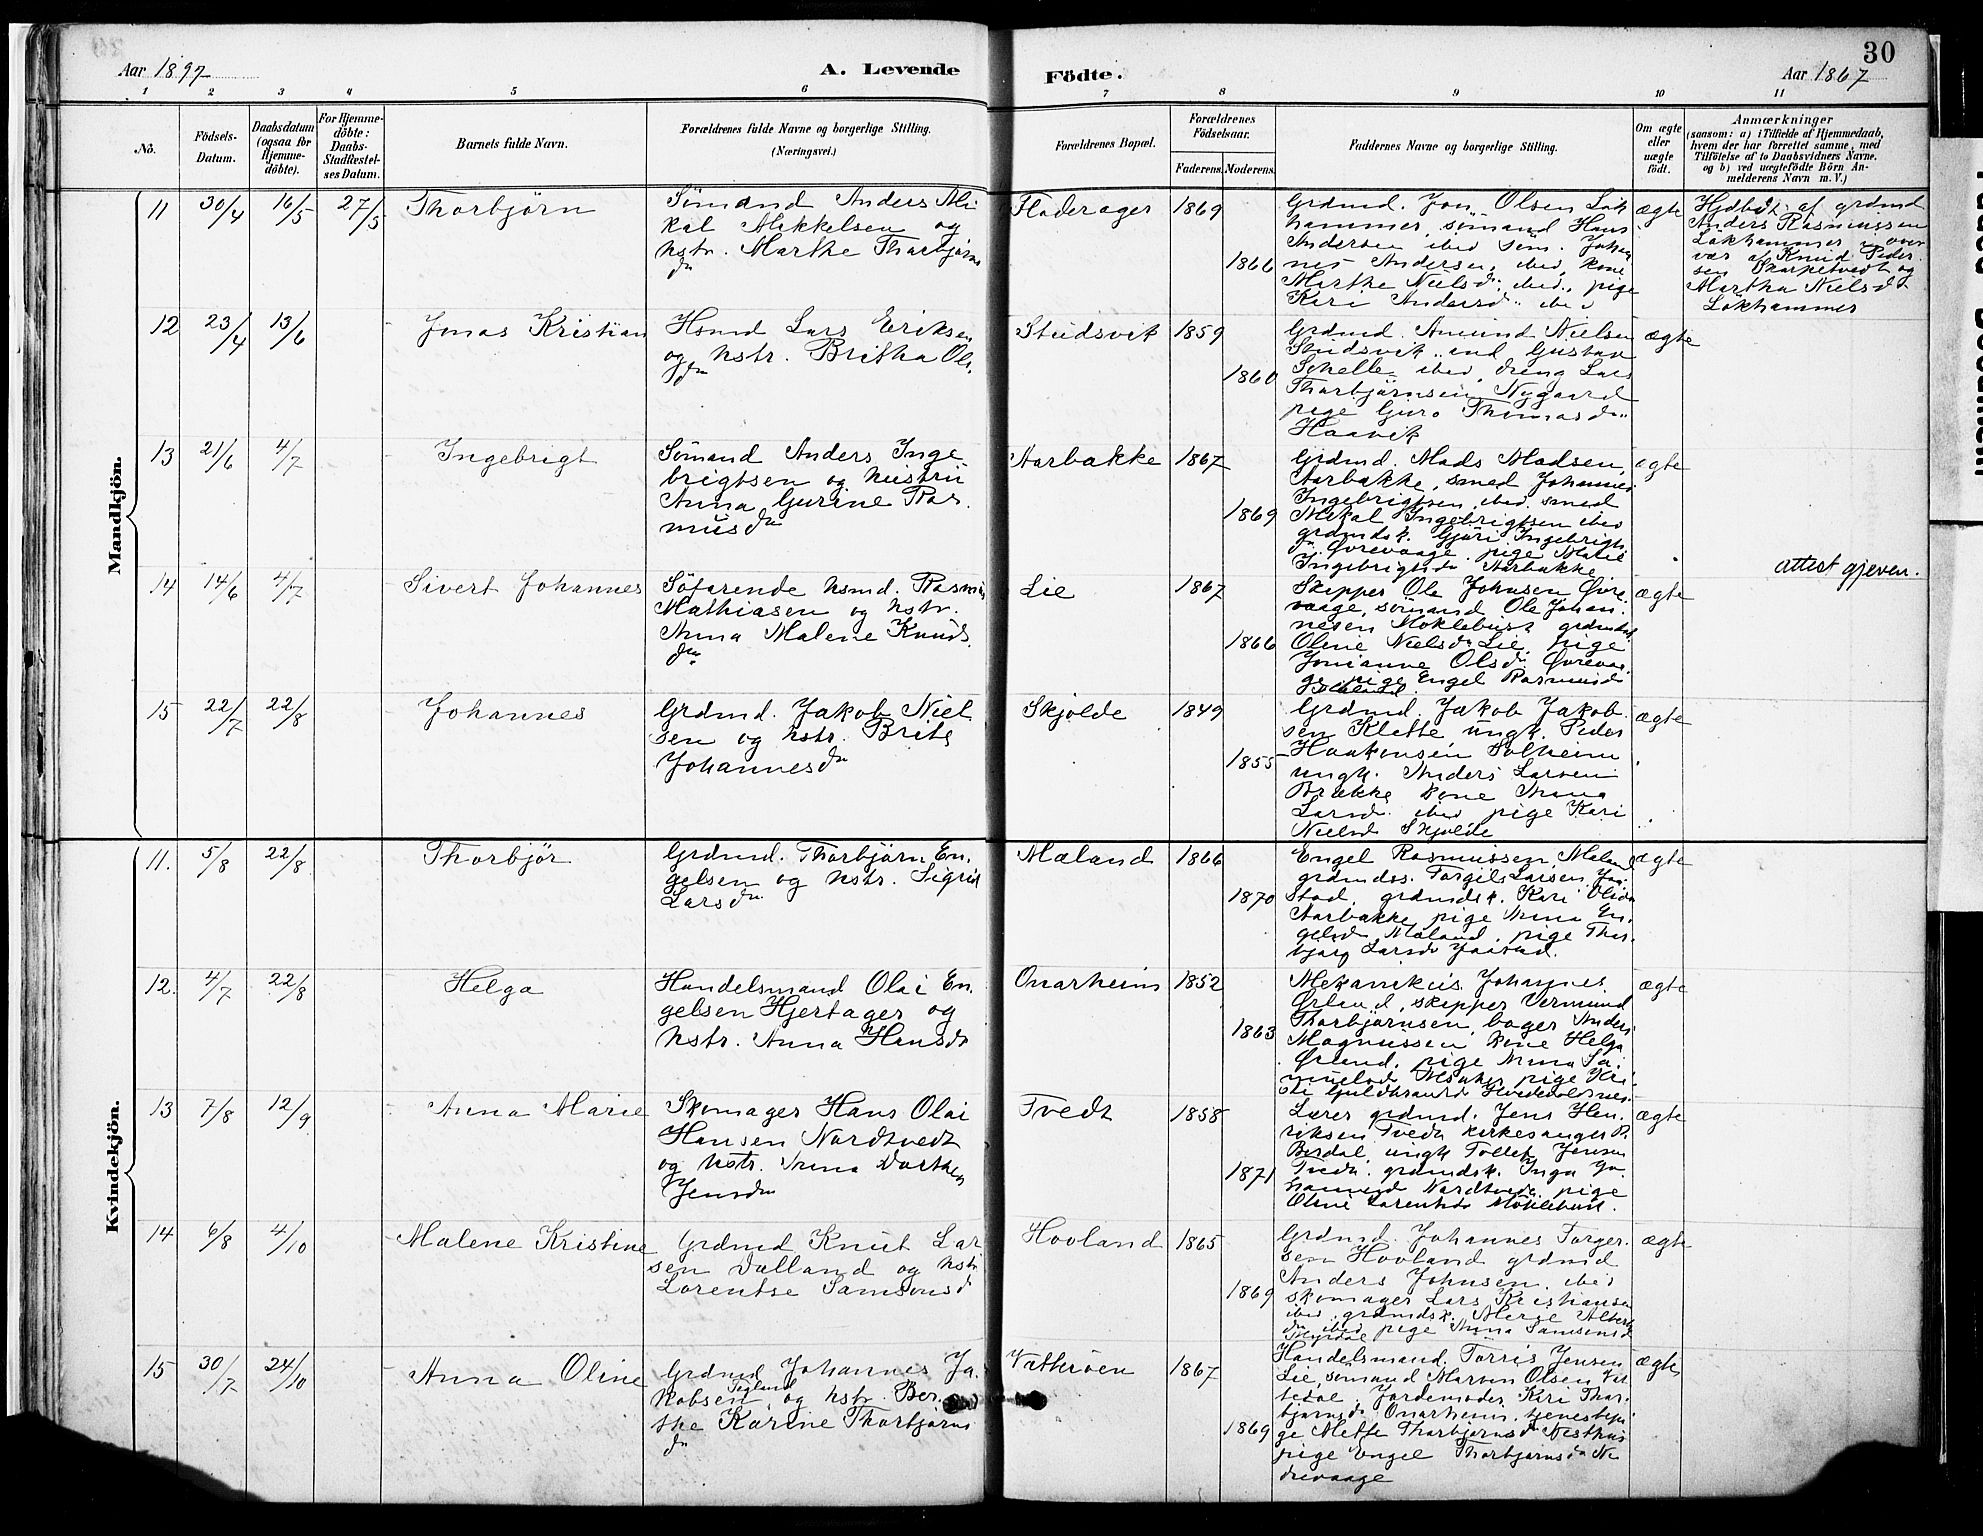 30
Aar 1897
A. Levende
Födte.
Aar 1867
1 2 3 4 5 6 7 8 9 10 11
No.
Födsels-
Datum.
Daabsdatum
(ogsaa for
Hjemme-
döbte).
For Hjemme-
döbte:
Daabs-
Stadfæstel-
ses Datum.
Barnets fulde Navn.
Forældrenes fulde Navne og borgerlige Stilling.
(Næringsvei.)
Forældrenes Bopæl.
Forældrenes
Födselsaar.
Faderens.
Moderens.
Faddernes Navne og borgerlige Stilling.
Om ægte
eller
uægte
födt.
Anmærkninger
(saasom: a) i Tilfælde af Hjemmedaab,
hvem der har forrettet samme, med
Tilföielse af to Daabsvidners Navne,
og b) ved uægtefödte Börn An-
melderens Navn m. V.)
Mandkjön.
11 30/4 16/5 27/5 Thorbjørn
Sömand Anders Mi
kal Mikkelsen og
hstr. Marthe Thorbjørns
dr
Floderager 1869
1866
Grdmd. Jon Olsen Lök
hammer, sömand Hans
Andersen ibid söm. Johan
nes Andersen, ibid, kone
Marthe Nielsd. ibid, pige
Kari Andersd. ibid
ægte
Hjdbt. af grdmd
Anders Rasmussen
Lökhammer i over
vær af Knud Peder
sen Skarpetvedt og
Martha Nielsd
Lökhammer
12 23/4 13/6 Jonas Kristian
Hsmd Lars Eriksen
og hstr. Britha Ols.
dr
Studsvik 1859
1860
Grdmd. Amund Nielsen
Studsvik, Gustav
ibid, dreng Lars
Thorbjørnsen Nygaard
pige Guro Thomasdr
Haavik
ægte
13 21/6 4/7 Ingebrigt
Sömand Anders Inge
brigtsen og hustru
Anna Gurine Ras.
musdr
Aarbakke 1867
1869
Grdmd. Mads Madsen,
Aarbakke, smed Johannes
Ingebrigtsen, ibid. smed
Mikal Ingebrigtsen ibid
grdmdsk. Gjøri Ingebrigts
dr. Øvrevaage, pige Marie
Ingebrigtsdr Aarbakke
ægte
14 14/6 4/7 Sivert Johannes
Söfarende hsmd. Rasmus
Mathiasen og hstr.
Anna Malene Knuds
dr
Lie 1867
1866
Skipper Ole Johnsen Øvre
vaage, sömand Ole Johan.
nesen Moklebust grdmdsk.
Olene Nielsdr Lie, pige
Jonianne Olsdr. Øvrevaa
ge, pige Engel Rasmusdr
ægte
attest gjeven.
15 22/7 22/8 Johannes
Grdmd. Jakob Niel
sen og hstr. Brite
Johannesdr
Skjølde 1849
1855
Grdmd. Jakob Jakob
sen Klette ungk. Peder
Haakonsen Solheim
ungk. Anders Larsen
Brekke kone Anna
Larsd. ibid pige Kari
Nielsd Skjølde
ægte
Kvindekjön.
11. 5/8 22/8 Thorbjør
Grdmd. Thorbjørn En
gelsen og hstr. Sigrid
Larsdr
Mæland 1866
1870
Engel Rasmussen, Mæland
grdmdss. Torgils Larsen Jaa
stad, grdmdsk. Kari Olsdr
Aarbakke pige Anna En.
gelsdr Mæland, pige Thor.
bjørg Larsdr Jaastad.
ægte
12. 4/7 22/8 Helga
Handelsmand Olai En.
gelsen Hjertager og
hstr. Anna Hansdr
Onarheim 1852
1863
Mekanikus Johannes
Ørland, skipper Vermund
Thorbjørnsen, bager Anders
Magnussen kone Helga
Ørland, pige Anna Sa.
muelsdr pige Kri.
sti Guldbrandsd
ægte
13 7/8 12/9 Anna Marie
Skomager Hans Olai
Hansen Nordtvedt
og hstr. Anna Dorthea
Jensdr
Tvedt 1858
1871
Lærer grdmd. Jens Hen.
riksen Tvedt kirkesanger
Berdal, ungk Tollef Jensen
Tvedt, grdmdsk. Inga Jo
hannesd Nordtvedt, pige
Oline Larentsdr Moklebust.
ægte
14 6/8 4/10 Malene Kristine
Grdmd Knut Lar
sen Dalland og hstr
Lorentse Samsonsd
Hovland 1865
1869
Grdmd. Johannes Torger
sen Hovland grdmd
Anders Johnsen ibid
skomager Lars Kristiansen
ibid, grdmdsk. Merge Alberts
dr ibid pige Anna Samsonsd
Myrdal
ægte
15 30/7 24/10 Anna Oline
Grdmd Johannes Ja.
kobsen Tegland og hstr. Ber.
the Karine Thorbjørns
dr
Vatteröen 1867
1869
Handelsmand Torris Jensen
Lie, sömand Marten Olsen Ves
tedal Jordemoder Kari Thor.
bjørnsdr Onarheim, tjenestepi
ge Mette Thorbjørnsd Nesthus
pige Engel Thorbjørnsdr Ne
drevaage
ægte